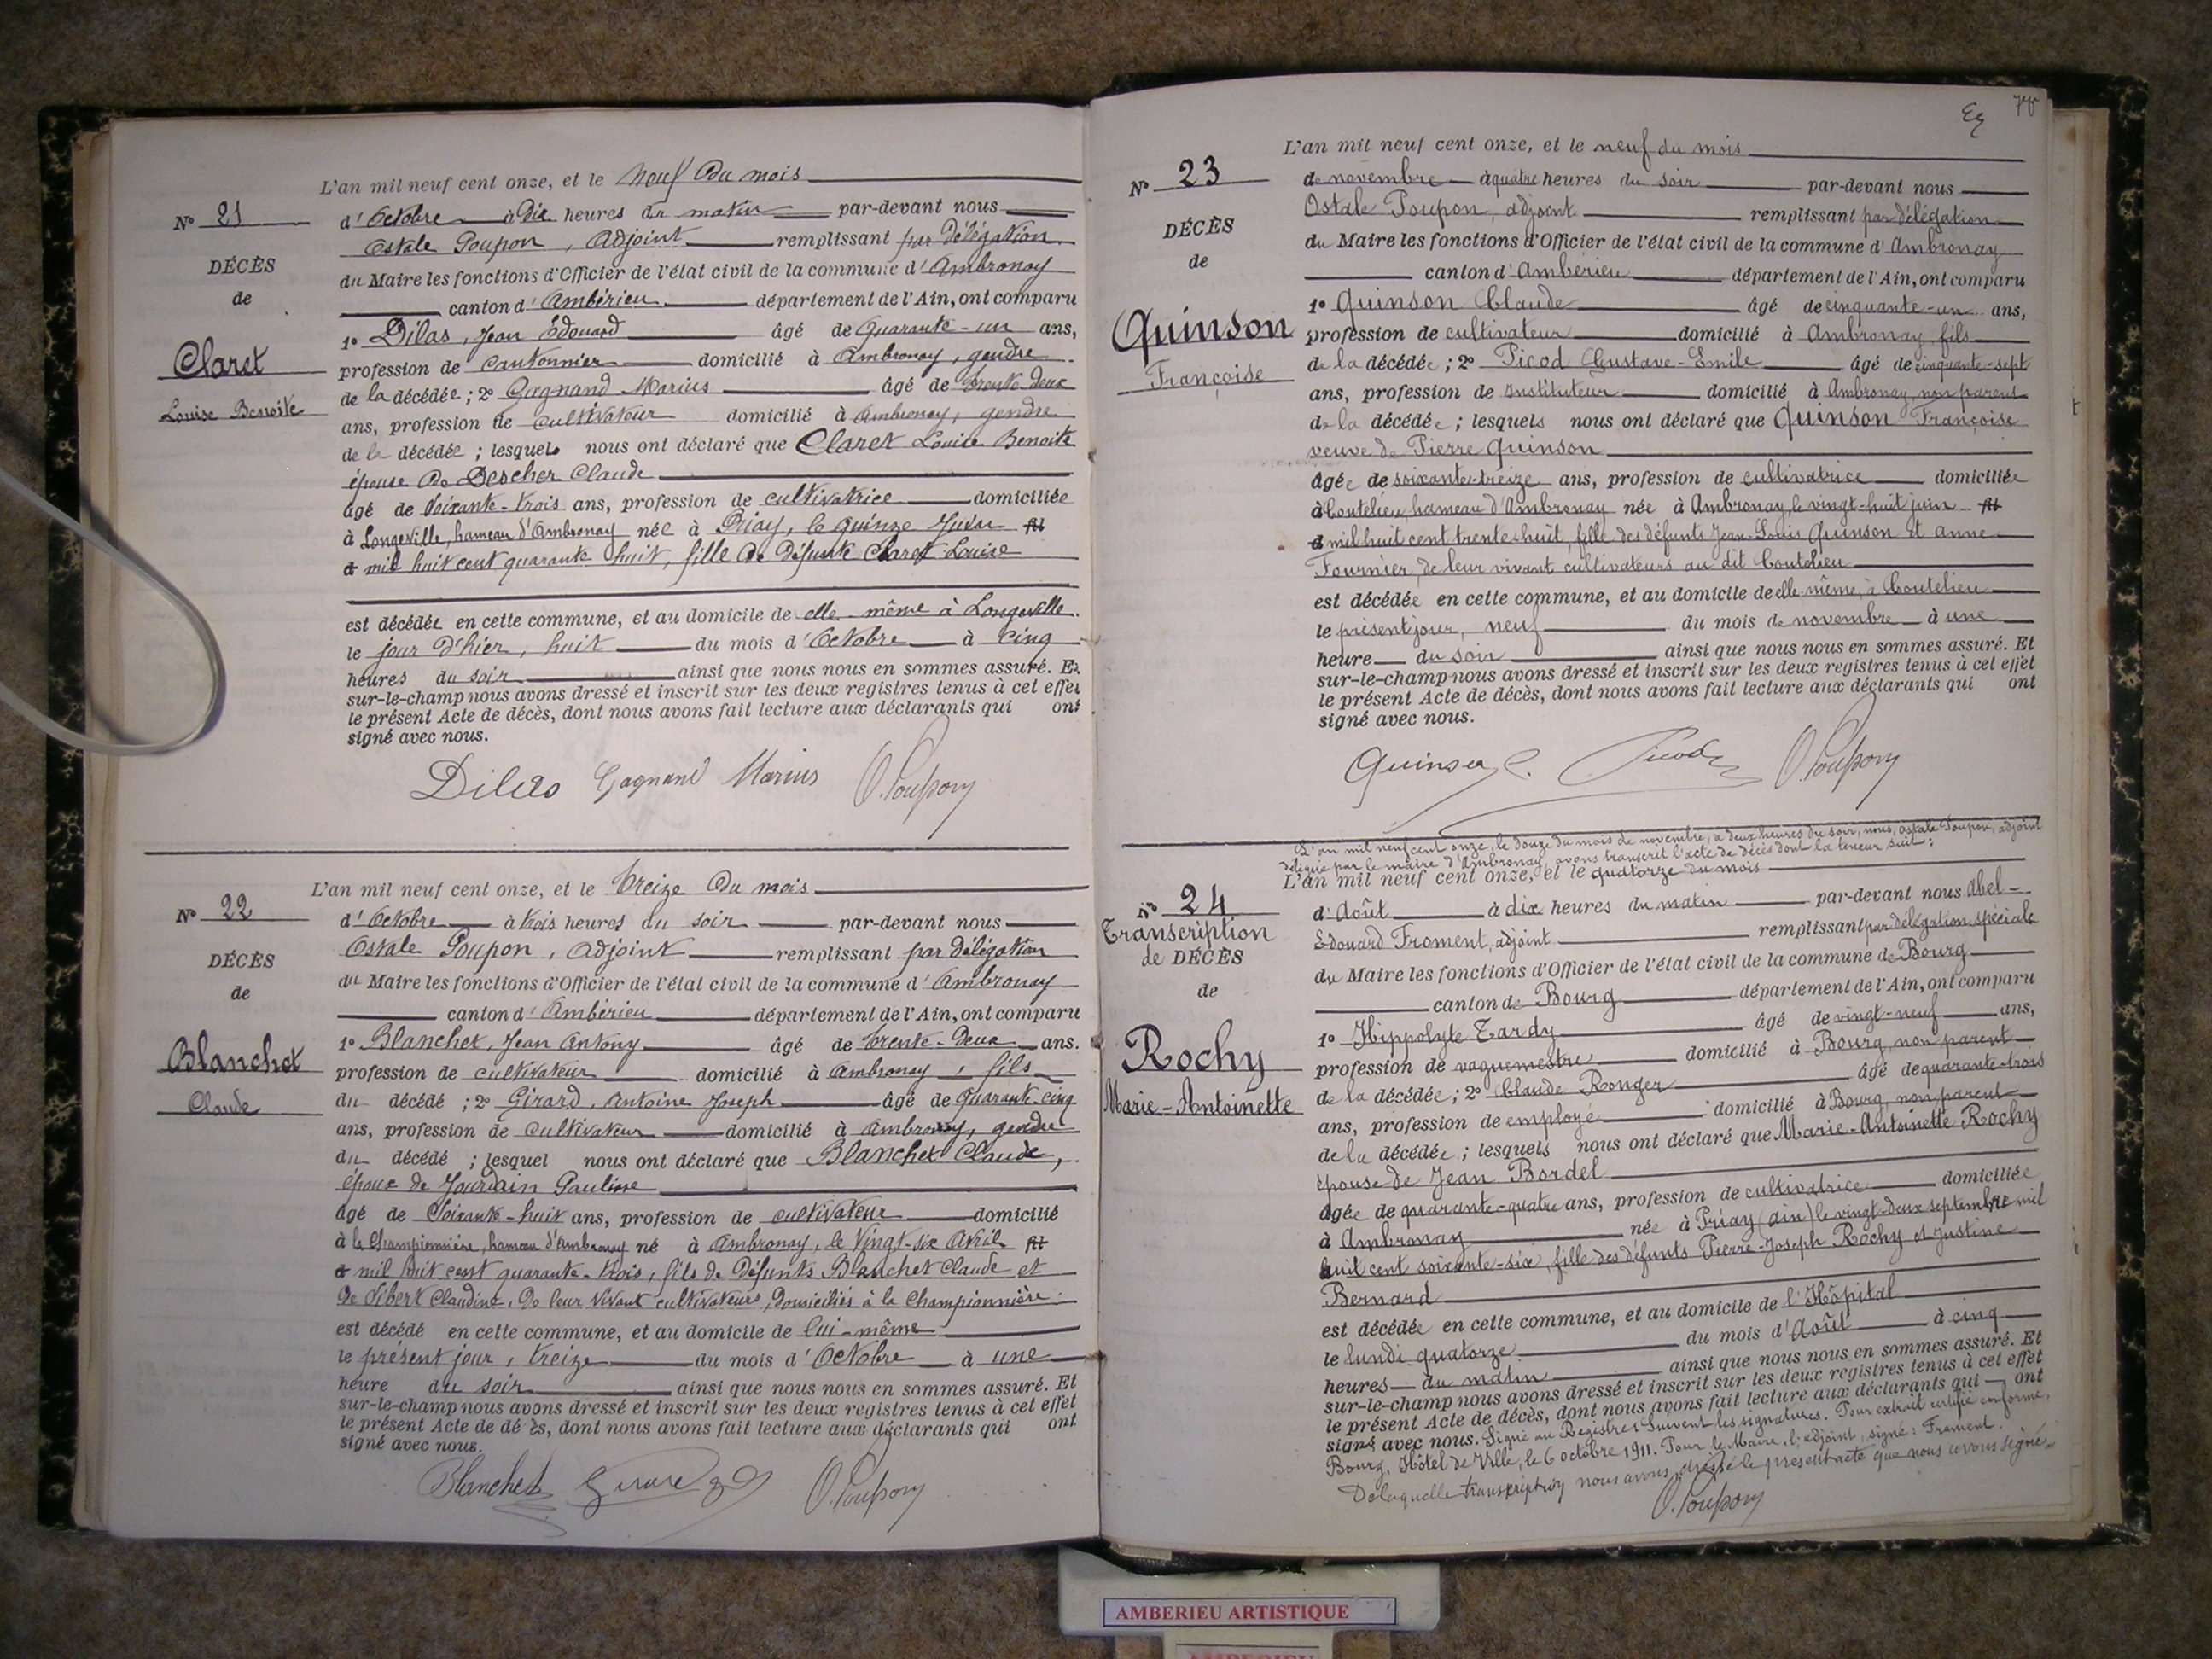 L'an mil neuf cent onze, et le Neuf Du mois
N° 21
d'Octobre à Dix heures du matin par-devant nous
Ostale Poupon, Adjoint remplissant par Délégation
DÉCÈS
du Maire les fonctions d'Officier de l'état civil de la commune d'Ambronay
de
canton d'Ambérieu département de l'Ain, ont comparu
1° Dilas, Jean Édouard âgé de Quarante-un ans,
Claret
profession de Cantonnier domicilié à Ambronay, gendre
de la décédée ; 2° Gagnand Marius âgé de trente-deux
Louise Benoite
ans, profession de Cultivateur domicilié à Ambronay, gendre
de la décédée ; lesquels nous ont déclaré que Claret Louise Benoite
épouse de Descher Claude
âgé de Soixante-trois ans, profession de cultivatrice domiciliée
à Longeville, hameau d'Ambronay née à Priay, le quinze Juin
mil huit cent quarante huit, fille de Défunte Claret Louise
est décédée en cette commune, et au domicile de elle-même à Longeville
le jour d'hier, huit du mois d'Octobre à cinq
heures du soir ainsi que nous nous en sommes assuré. Et
sur-le-champ nous avons dressé et inscrit sur les deux registres tenus à cet effet
le présent Acte de décès, dont nous avons fait lecture aux déclarants qui ont
signé avec nous.
Dilas Gagnand Marius O. Poupon
L'an mil neuf cent onze, et le treize Du mois
N° 22
d'Octobre à trois heures du soir par-devant nous
Ostale Poupon, Adjoint remplissant par Délégation
DÉCÈS
du Maire les fonctions d'Officier de l'état civil de la commune d'Ambronay
de
canton d'Ambérieu département de l'Ain, ont comparu
1° Blanchet, Jean Antony âgé de trente-Deux ans.
Blanchet
profession de cultivateur domicilié à Ambronay, fils
Claude
du décédé ; 2° Girard, Antoine Joseph âgé de Quarante-cinq
ans, profession de Cultivateur domicilié à Ambronay, gendre
du décédé ; lesquel nous ont déclaré que Blanchet Claude,
époux de Jourdain Pauline
âgé de Soixante-huit ans, profession de cultivateur domicilié
à la Championnière, hameau d'Ambronay né à Ambronay, le Vingt-six Avril
mil huit cent quarante-trois, fils de Défunts Blanchet Claude et
De Sibert Claudine, De leur vivant cultivateurs, domiciliés à la Championnière
est décédé en cette commune, et au domicile de lui-même
le présent jour, treize du mois d'Octobre à une
heure du soir ainsi que nous nous en sommes assuré. Et
sur-le-champ nous avons dressé et inscrit sur les deux registres tenus à cet effet
le présent Acte de dé ès, dont nous avons fait lecture aux déclarants qui ont
signé avec nous.
Blanchet Girard O. Poupon
L'an mil neuf cent onze, et le neuf du mois
N° 23
de novembre à quatre heures du soir par-devant nous
Ostale Poupon, adjoint remplissant par délégation
DÉCÈS
du Maire les fonctions d'Officier de l'état civil de la commune d'Ambronay
de
canton d'Ambérieu département de l'Ain, ont comparu
1° Quinson Claude âgé de cinquante-un ans,
Quinson
profession de cultivateur domicilié à Ambronay fils
de la décédée ; 2° Picod Gustave-Emile âgé de cinquante-sept
Françoise
ans, profession de Instituteur domicilié à Ambronay, non parent
de la décédée ; lesquels nous ont déclaré que Quinson Françoise
veuve de Pierre Quinson
âgée de soixante-treize ans, profession de cultivatrice domiciliée
à Coutelieu, hameau d'Ambronay née à Ambronay, le vingt-huit juin
mil huit cent trente-huit, fille des défunts Jean-Louis Quinson et Anne
Fournier, de leur vivant cultivateurs au dit Coutelieu
est décédée en cette commune, et au domicile de elle-même, à Coutelieu
le présent jour, neuf du mois de novembre à une
heure du soir ainsi que nous nous en sommes assuré. Et
sur-le-champ nous avons dressé et inscrit sur les deux registres tenus à cet effet
le présent Acte de décès, dont nous avons fait lecture aux déclarants qui ont
signé avec nous.
Quinson C. Picod O. Poupon
L'an mil neuf cent onze, le douze du mois de novembre, à deux heures du soir, nous, Ostale Poupon, adjoint
délégué par le maire d'Ambronay, avons transcrit l'acte de décès dont la teneur suit :
L'an mil neuf cent onze, et le quatorze du mois
N° 24
d'Août à dix heures du matin par-devant nous Abel-
Transcription
Edouard Froment, adjoint remplissant par délégation spéciale
de DÉCÈS
du Maire les fonctions d'Officier de l'état civil de la commune de Bourg
de
canton de Bourg département de l'Ain, ont comparu
1° Hippolyte Tardy âgé de vingt-neuf ans,
Rochy
profession de vaguemestre domicilié à Bourg, non parent
de la décédée ; 2° Claude Ronger âgé de quarante-trois
Marie-Antoinette
ans, profession de employé domicilié à Bourg, non parent
de la décédée ; lesquels nous ont déclaré que Marie-Antoinette Rochy
épouse de Jean Bordel
âgée de quarante-quatre ans, profession de cultivatrice domiciliée
à Ambronay née à Priay (ain) le vingt-deux septembre mil
huit cent soixante-six, fille des défunts Pierre-Joseph Rochy et Justine
Bernard
est décédée en cette commune, et au domicile de l'Hôpital
le lundi quatorze du mois d'Août à cinq
heures du matin ainsi que nous nous en sommes assuré. Et
sur-le-champ nous avons dressé et inscrit sur les deux registres tenus à cet effet
le présent Acte de décès, dont nous avons fait lecture aux déclarants qui ont
signé avec nous. Signé au Registre : Suivent les signatures. Pour extrait certifié conforme,
Bourg, Hôtel de Ville, le 6 octobre 1911. Pour le Maire, l'adjoint, signé : Froment.
De laquelle transcription nous avons dressé le présent acte que nous avons signé
O. Poupon
AMBERIEU ARTISTIQUE
AMBERIEU